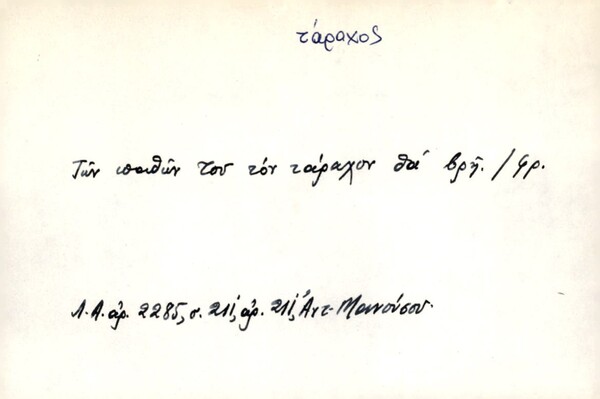 τάραχος
Τῶν παθῶν του τόν τάραχον θά βρῇ. / φρ.
Λ.Α. ἀρ. 2285, σ. 211, ἀρ. 211, Ἀντ. Μανούσου.